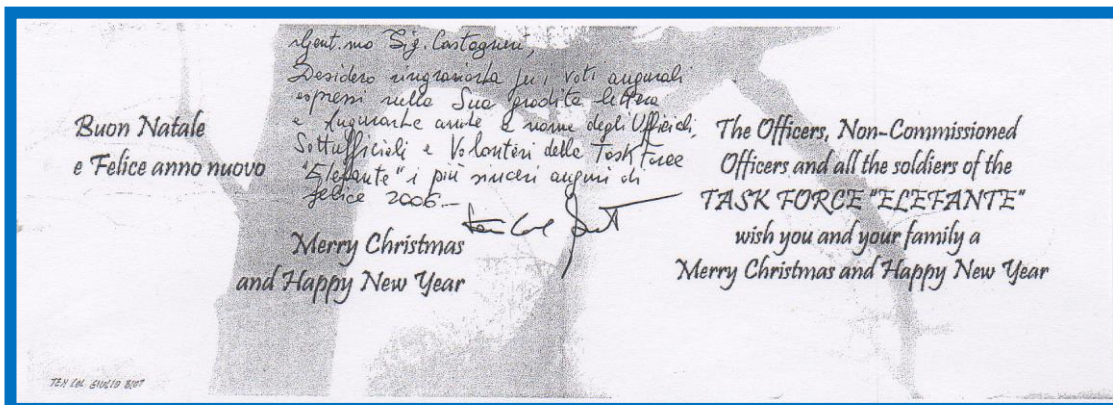 Gent.mo Sig. Castagneri,
Desidero ringraziarLa per i voti augurali
espressi nella Sua gradita lettera
e AugurarLe anche a nome degli Ufficiali,
Sottufficiali e Volontari della Task Force
"Elefante" i più sinceri auguri di
felice 2006.-
Ten Col
Buon Natale
e Felice anno nuovo
Merry Christmas
and Happy New Year
The Officers, Non-Commissioned
Officers and all the soldiers of the
TASK FORCE "ELEFANTE"
wish you and your family a
Merry Christmas and Happy New Year
TEN COL GIULIO